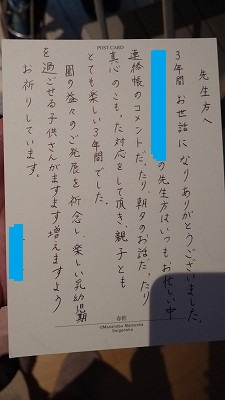 POST CARD
先生方へ
3年間お世話になりありがとうございました。
の先生方はいつもお忙しい中
連絡帳のコメントだったり、朝夕のお話だったり
真心のこもった対応をして頂き、親子とも
とても楽しい3年間でした。
園の益々のご発展を祈念し、楽しい乳幼児期
を過ごせる子供さんがますます増えますよう
お祈りしています。